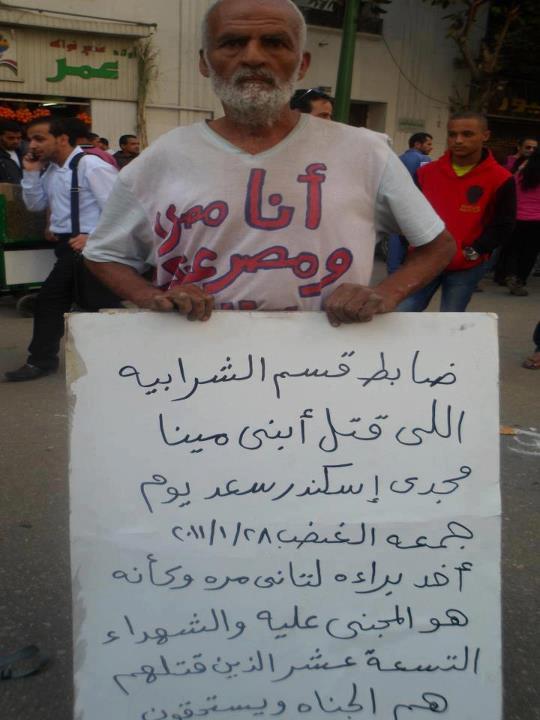 أولاد
عمر
أنا مصرى
ومصر عند
ضابط قسم الشرابيه
اللى قتل أبنى مينا
مجدى إسكندر سعد يوم
جمعه الغضب ٢٠١١/١/٢٨
أخد براءه لتانى مره وكأنه
هو المجنى عليه والشهداء
التسعة عشر الذين قتلهم
هم الجناه ويستحقون